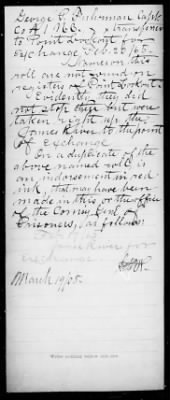 George P. Fisherman Capt
Co A / 1863. & transferred
to Point Lookout for
Exchange Feb. 20/65.
Names on this
roll are not found on
registers of Point Lookout.
Evidently they did
not stop there but were
taken right up the
James River to the point
of exchange
On a duplicate of the
above named roll is
an indorsement in red
ink, that may have been
made in this, or the office
of the Comsy Genl of
Prisoners, as follows
James River for
exchange
March 19/65.